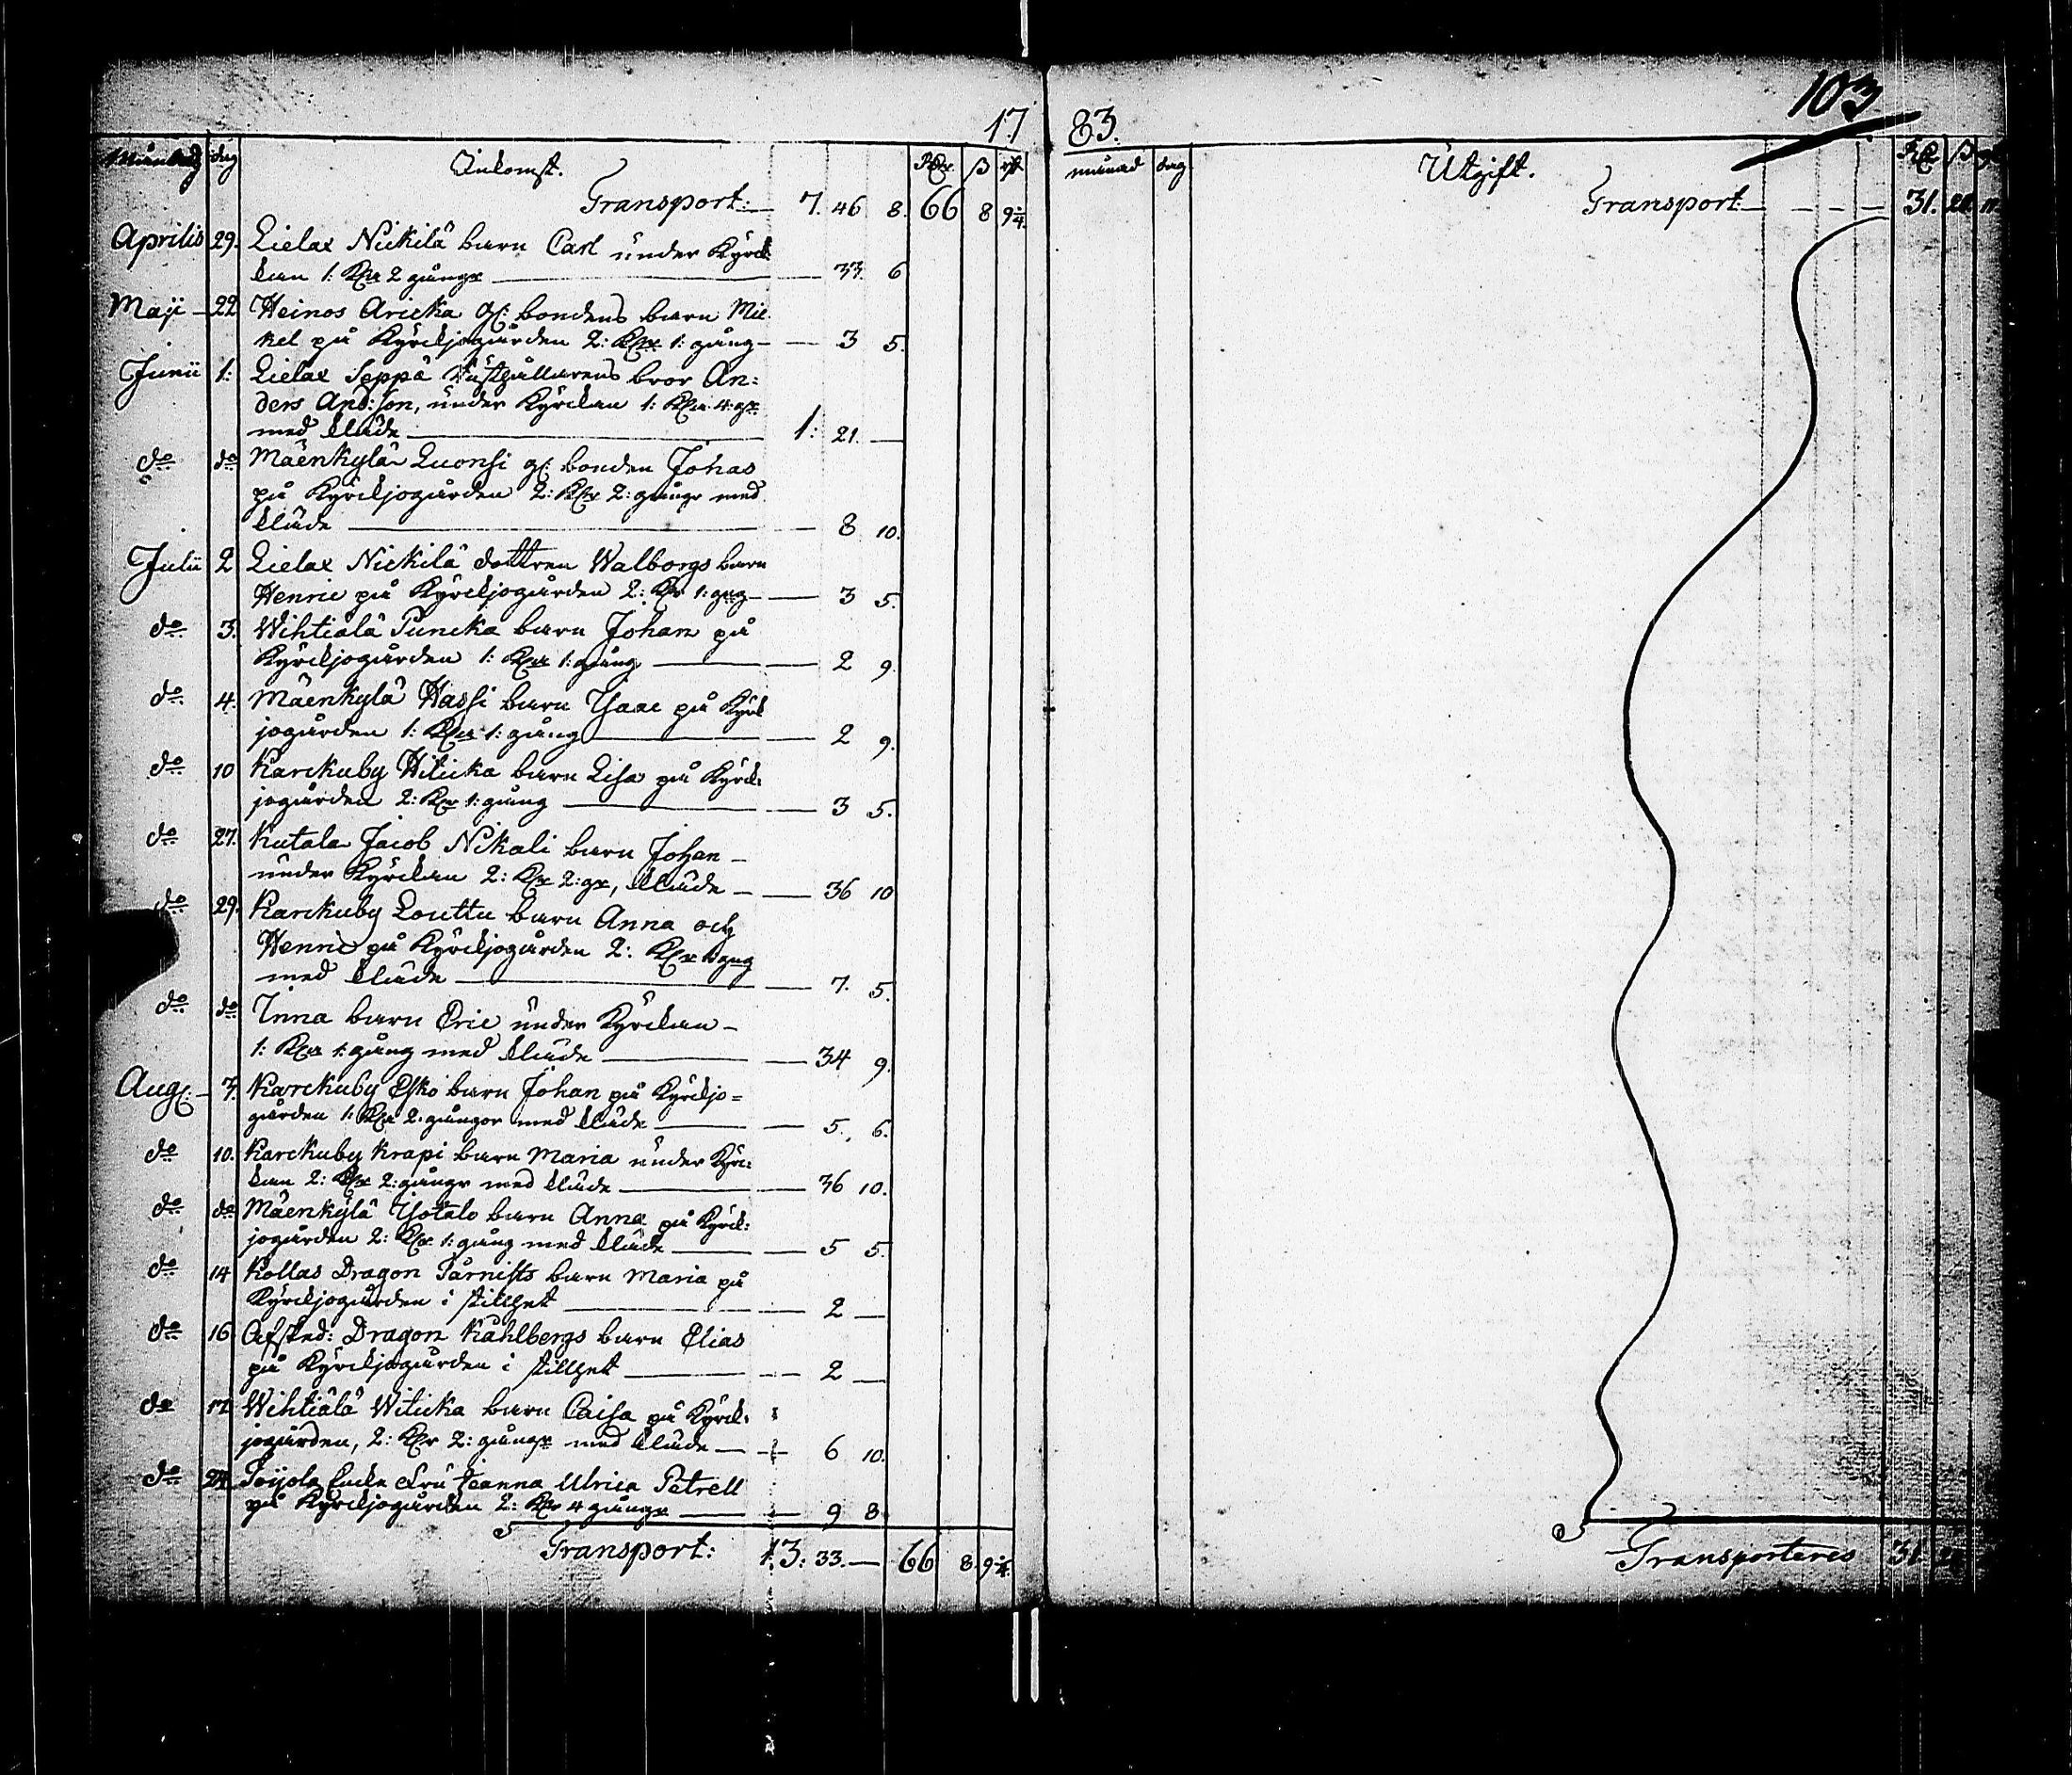 103
17 83.
Månad dag Inkomst. Rdr ß rst
Transport: 7. 46 8. 66 8 9 1/4.
Aprilis 29. Lielax Nickilä barn Carl under Kyrc
kan 1: Klr 2 gångr 33. 6
Maji 22 Heinos Aricka gl: bondens barn Mic-
kel på Kyrckjogården 2: Klr 1: gång 3 5.
Junii 1: Lielax Seppä Rusthållarens bror An:
ders And:son, under Kyrckan 1: Klr 4: gr
med kläde 1: 21.
do do Mäenkylä Luonsi gl: bonden Johas
på Kyrckjogården 2: Klr 2: gångr med
kläde 8 10.
Julii 2 Lielax Nickilä dottren Walborgs barn
Henric på Kyrckjogården 2: Klr 1: gng 3 5.
do 3. Wihtiälä Puncka barn Johan på
Kyrckjogården 1: Klr 1: gång 2 9.
do 4. Mäenkylä Hassi barn Isaac på Kyrck
jogården 1: Klr 1: gång 2 9.
do 10 Karckuby Hiticka barn Lisa på Kyrck:
jogården 2: Klr 1: gång 3 5.
do 27. Kutala Jacob Nikali barn Johan
under Kyrckan 2: Klr 2: gr, kläde 36 10
do 29. Karckuby Louttu barn Anna och
Henric på Kyrckjogården 2: Klr 1 gng
med kläde 7. 5.
do do Inna barn Eric under Kyrckan
1: Klr 1: gång med kläde 34 9.
Aug: 7. Karckuby Esko barn Johan på Kyrckjo=
gården 1: Klr 2: gångor med kläde 5. 6.
do 10. Karckuby Krapi barn Maria under Kyrc:
kan 2: Klr 2: gångr med kläde 36 10.
do do Mäenkylä Isotalo barn Anna på Kyrck:
jogården 2: Klr 1: gång med kläde 5 5.
do 14 Kollas Dragon Tårnists barn Maria på
Kyrckjogården i stillhet 2
do 16 Afsked: Dragon Kåhlbergs barn Elias
på Kyrckjogården i stillhet 2
do 17 Wihtiälä Witicka barn Caisa på Kyrck:
jogården, 2: Klr 2: gångr med kläde 6 10.
do 24 Enck Fru Ulrica Petrell
på Kyrckjogården 2: Klr 4 gångr 9 8
Transport: 13: 33. 66 8. 9 1/4.
månad dag Utgift. Rdr ß
Transport 31.
Transporteres 31